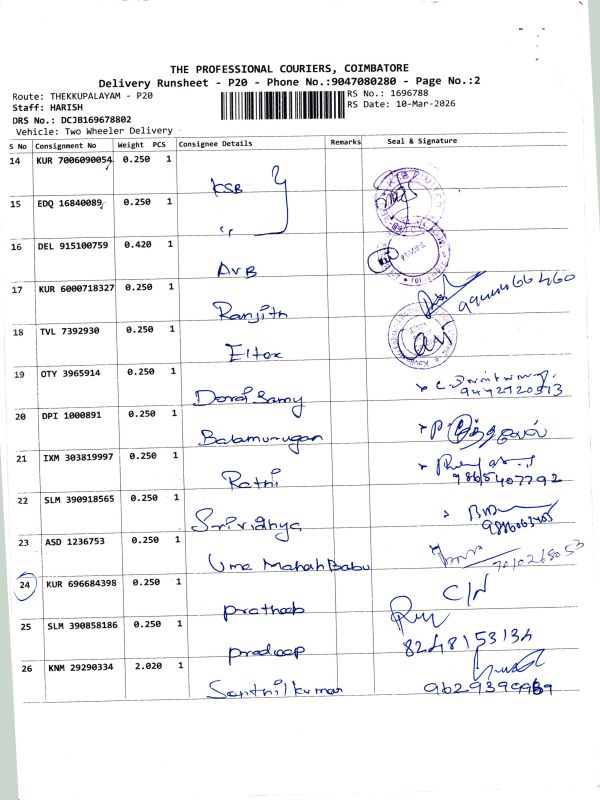 THE PROFESSIONAL COURIERS, COIMBATORE
Delivery Runsheet - P20 - Phone No.:9047080280 - Page No.:2
Route: THEKKUPALAYAM - P20
RS No.: 1696788
Staff: HARISH
RS Date: 10-Mar-2026
DRS No.: DCJB169678802
Vehicle: Two Wheeler Delivery
S No Consignment No Weight PCS Consignee Details Remarks Seal & Signature
14 KUR 7006090054 0.250 1
KSB
15 EDQ 16840089 0.250 1
,,
16 DEL 915100759 0.420 1
AVB
17 KUR 6000718327 0.250 1
Ranjith
18 TVL 7392930 0.250 1
Eltex
19 OTY 3965914 0.250 1
Dorai Samy 9442720513
20 DPI 1000891 0.250 1
Balamurugan
21 IXM 303819997 0.250 1
Rathi 9865407792
22 SLM 390918565 0.250 1
Srividhya
23 ASD 1236753 0.250 1
Uma Mahah Babu 7010268053
24 KUR 696684398 0.250 1
Prathab C/N
25 SLM 390858186 0.250 1
Pradeep 8248153134
26 KNM 29290334 2.020 1
Senthilkumar